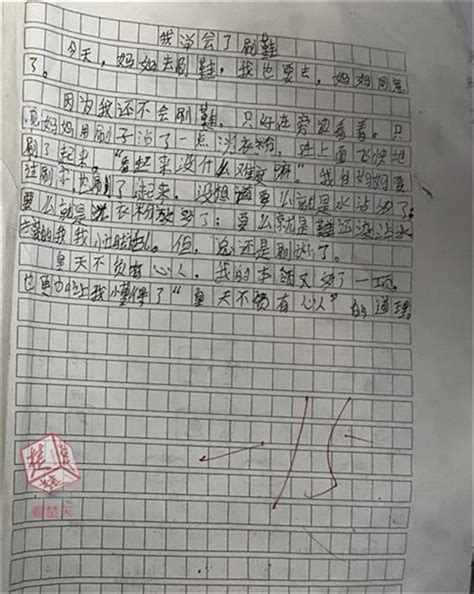 我学会了刷鞋
今天，妈妈去刷鞋，我也要去，妈妈同意
了。
因为我还不会刷鞋，只好在旁边看着。只
见妈妈用刷子沾了一点洗衣粉，在上面飞快地
刷了起来，“看起来没什么难度嘛”我向妈妈要
过刷子也刷了起来，没想道要么就是水沾多了，
要么就是洗衣粉放多了；要么就是鞋还没沾水
的我。但，总还是刷好了。
皇天不负有心人，我的本领又多了一项。
也再加上我懂得了“皇天不负有心人”的道理
看楚天